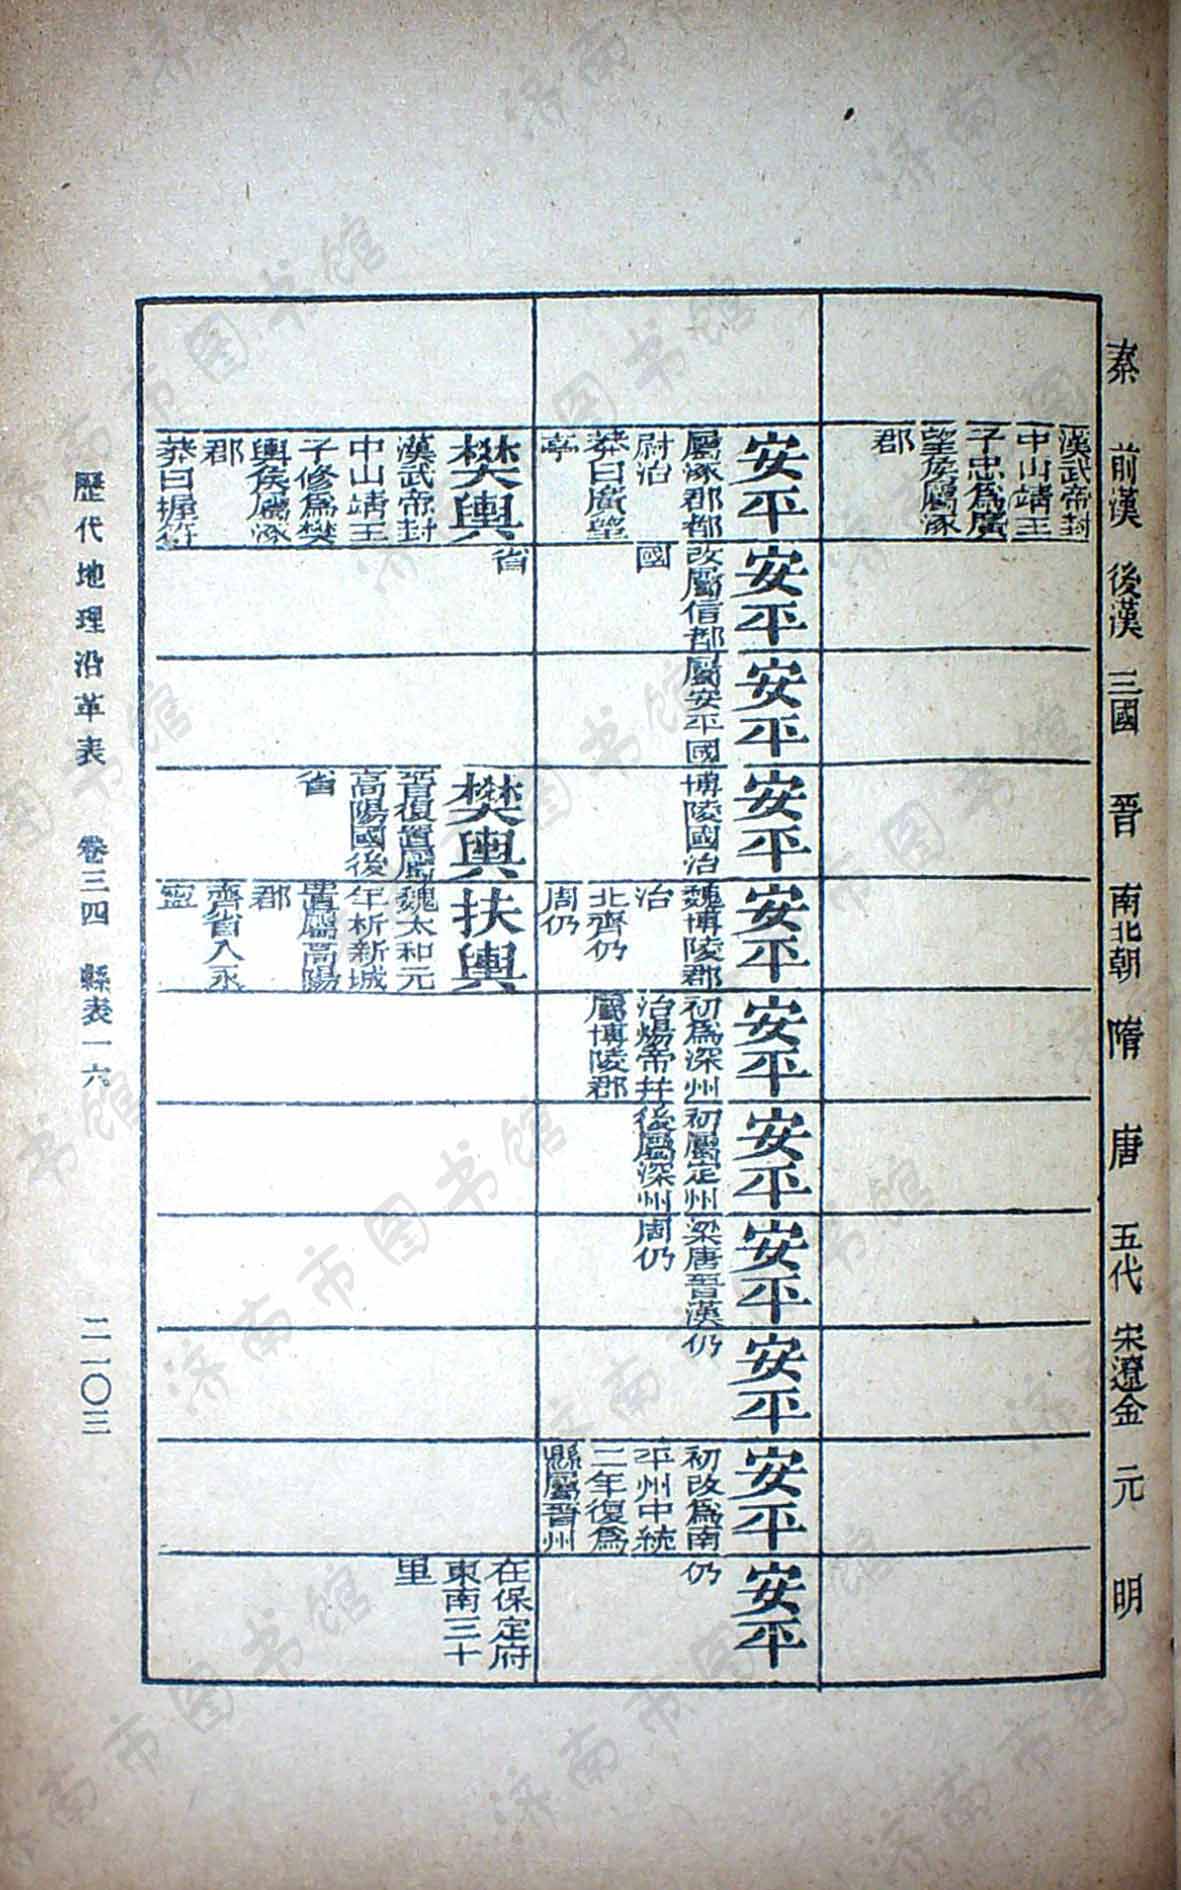 秦
前漢
後漢
三國
晉
南北朝
隋
唐
五代
宋遼金
元
明
漢武帝封
中山靖王
子忠爲廣
望侯屬涿
郡
安平
屬涿郡都
尉治
莽曰廣望
亭
安平
改屬信都
國
安平
屬安平國
安平
博陵國治
安平
魏博陵郡
治
北齊仍
周仍
安平
初爲深州
治煬帝并
屬博陵郡
安平
初屬定州
後屬深州
安平
梁唐晉漢
周仍
安平
仍
安平
初改爲南
平州中統
二年復爲
縣屬晉州
安平
仍
樊輿
漢武帝封
中山靖王
子修爲樊
輿侯屬涿
郡
莽曰握符
省
樊輿
晉復置屬
高陽國後
省
扶輿
魏太和元
年析新城
置屬高陽
郡
齊省入永
寧
在保定府
東南三十
里
歷代地理沿革表 卷三四 縣表一六 二一〇三
济南市图书馆